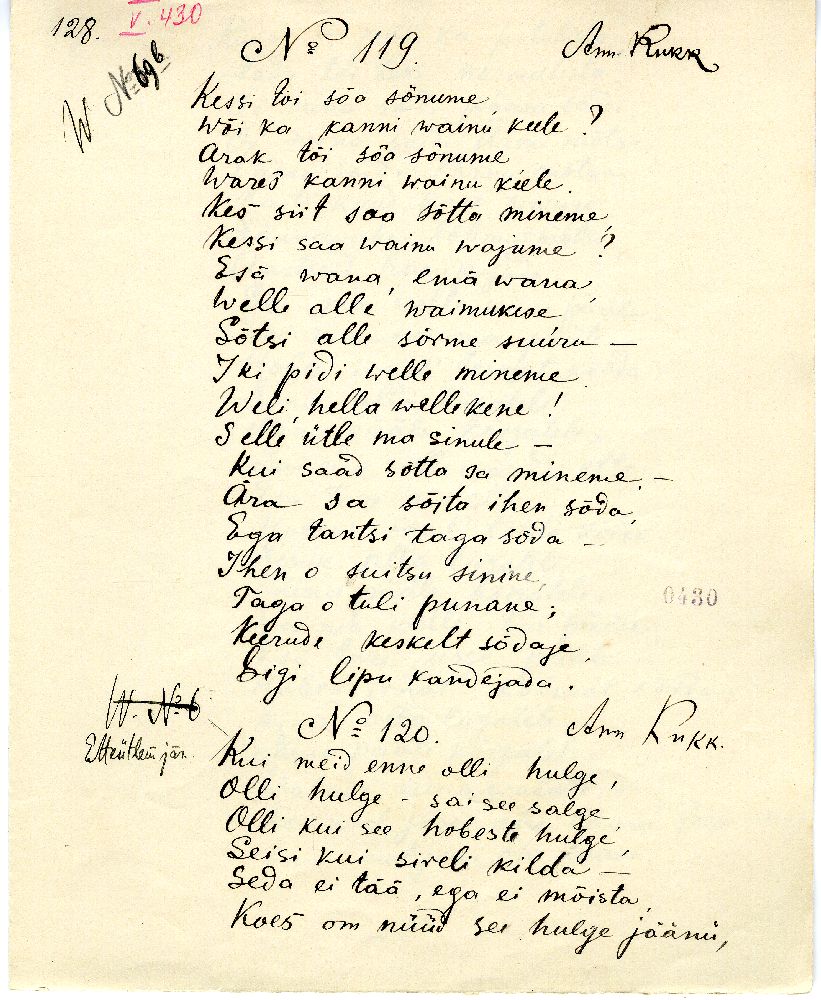 128.
V. 430
W № 69 b
№ 119.
Ann Kukk
Kessi töi sõa sõnume
Wõi ka kanni wainu keele?
Arak tõi sõa sõnume
Wares kanni wainu keele.
Kes siit saa sõtta mineme,
Kessi saa wainu wajume?
Esä wana, emä wana,
Welle alle waimukese
Sõtsi alle sõrme suuru —
Iki pidi welle mineme.
Weli, hella wellekene!
Selle ütle ma sinule —
Kui saad sõtta sa mineme. —
Ära sa sõita ihen sõda,
Ega tantsi taga sõda —
Ihen o suitsu sinine,
Taga o tuli punane;
Keerude keskelt sõdaje,
Ligi lipu kandejada.
0430
W. № 6
Etteütlem. jär.
№ 120.
Ann Kukk.
Kui meid enne olli hulge,
Olli hulge - sai see salge
Olli kui see hobeste hulge,
Seisi kui sireli kilda —
Seda ei tää, ega ei mõista,
Koes om nüüd see hulge jäänü,